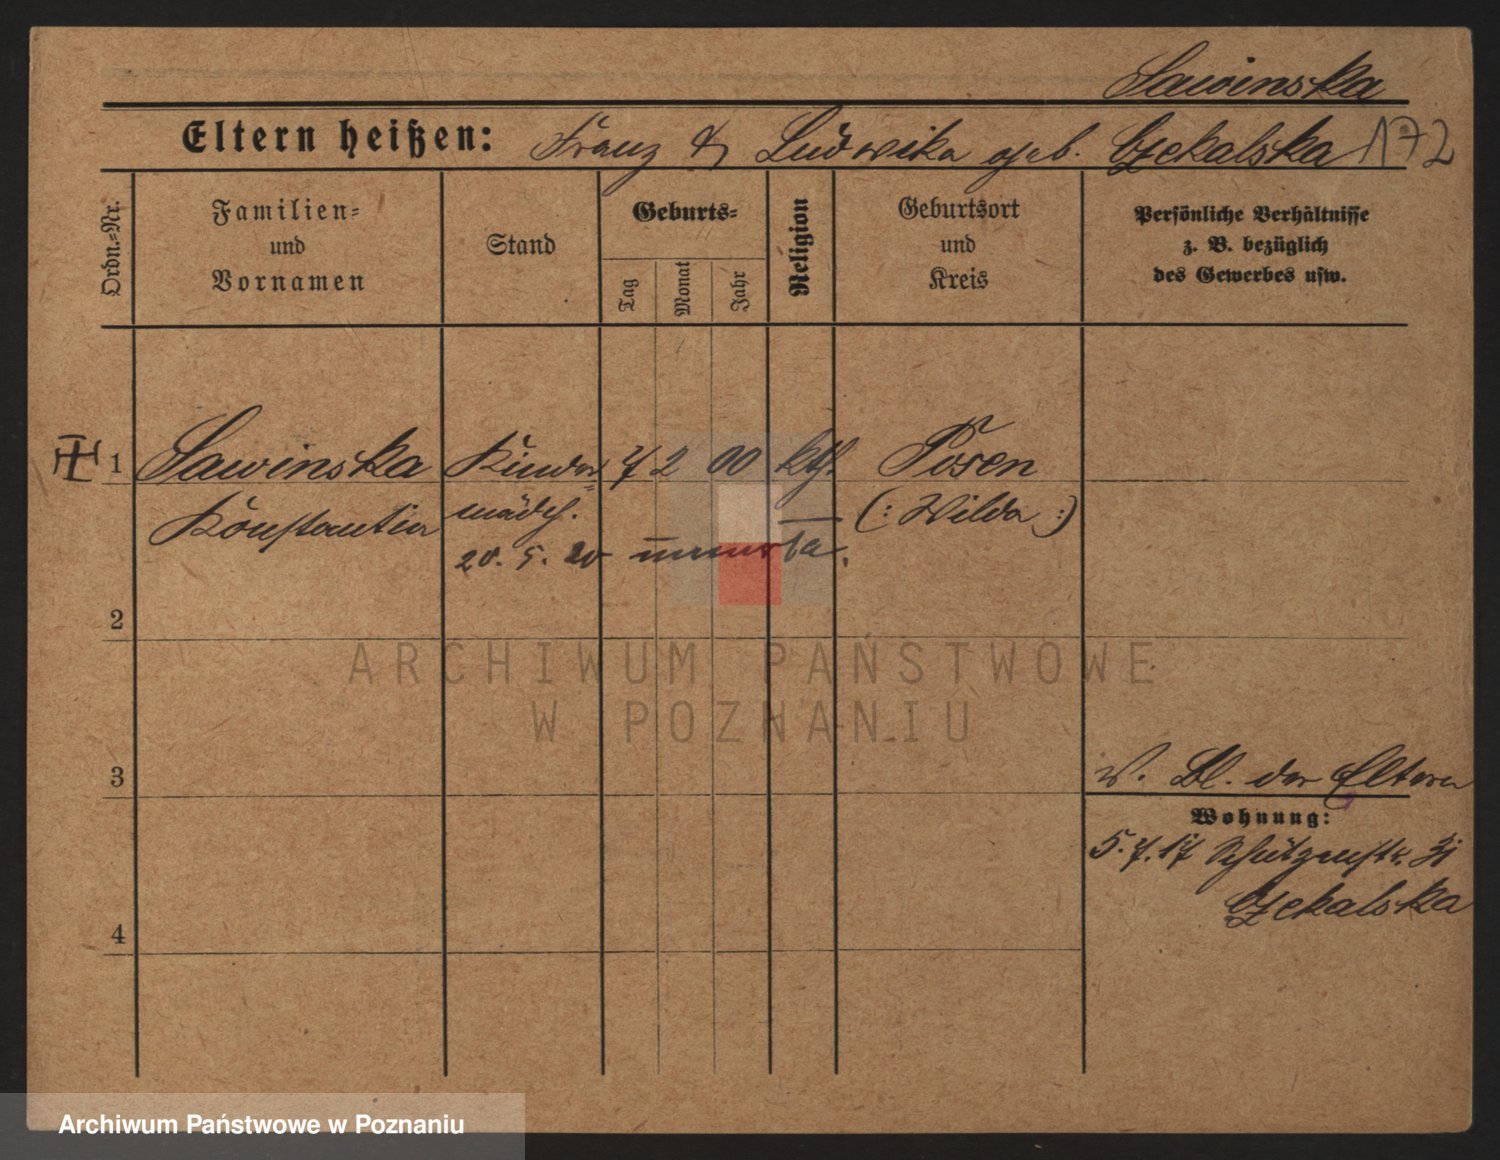 Sawinska
Eltern heißen: Franz & Ludwika geb. Czekalska 172
Ordn.-Nr.
Familien- und Vornamen
Stand
Geburts-
Tag
Monat
Jahr
Religion
Geburtsort und Kreis
Persönliche Verhältnisse z. B. bezüglich des Gewerbes usw.
1 Sawinska Kinder= 7 2 00 kth. Posen
Konstantia mädch. (: Wilda :)
20. 5. 20
2
ARCHIWUM PAŃSTWOWE
W POZNANIU
3
W. Bl. der Eltern
Wohnung:
5. 7. 17 Schützenstr. 31
Czekalska
4
Archiwum Państwowe w Poznaniu